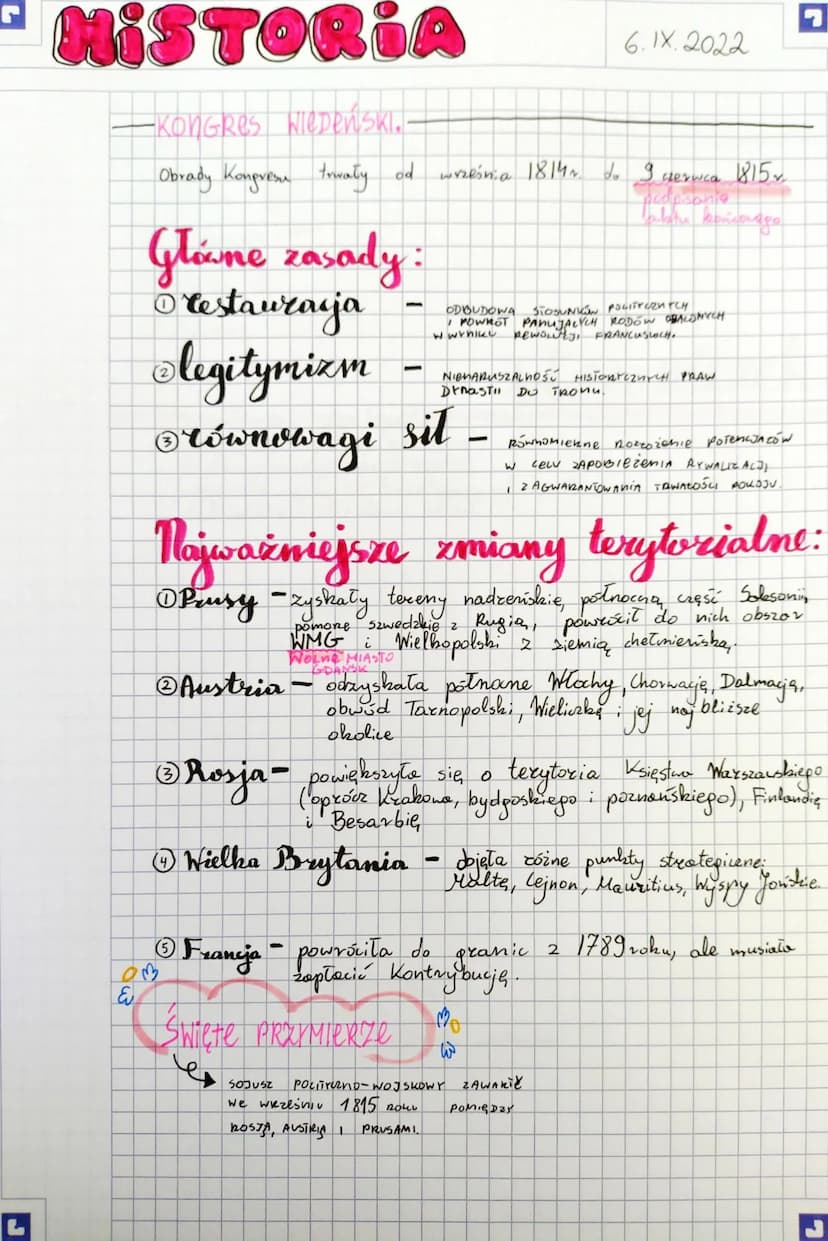 HiSTORiA
6.IX.2022
KONGRES WIEDEŃSKI.
Obrady Kongresu trwały od września 1814r. do 9 czerwca 1815r.
podpisanie
aktu końcowego
Główne zasady:
① restauracja – ODBUDOWA STOSUNKÓW POLITYCZNYCH
I POWRÓT PANUJĄCYCH RODÓW OBALONYCH
W WYNIKU REWOLUCJI FRANCUSKIEJ.
② legitymizm – NIENARUSZALNOŚĆ HISTORYCZNYCH PRAW
DYNASTII DO TRONU.
③ równowagi sił – RÓWNOMIERNE ROZŁOŻENIE POTENCJAŁÓW
W CELU ZAPOBIEŻENIA RYWALIZACJI
I ZAGWARANTOWANIA TRWAŁOŚCI POKOJU.
Najważniejsze zmiany terytorialne:
① Prusy – zyskały tereny nadreńskie, północną część Saksonii,
pomorze szwedzkie z Rugią, powrócił do nich obszar
WMG i Wielkopolski z ziemią chełmińską.
WOLNE MIASTO
GDAŃSK
② Austria – odzyskała północne Włochy, Chorwację, Dalmację,
obwód Tarnopolski, Wieliczkę i jej najbliższe
okolice
③ Rosja – powiększyła się o terytoria Księstwa Warszawskiego
(oprócz Krakowa, bydgoskiego i poznańskiego), Finlandię
i Besarbię
④ Wielka Brytania – objęła różne punkty strategiczne:
Maltę, Cejnon, Mauritius, Wyspy Jońskie.
⑤ Francja – powróciła do granic z 1789 roku, ale musiała
zapłacić kontrybucję.
ŚWIĘTE PRZYMIERZE
SOJUSZ POLITYCZNO-WOJSKOWY ZAWARTY
WE WRZEŚNIU 1815 ROKU POMIĘDZY
ROSJĄ, AUSTRIĄ I PRUSAMI.